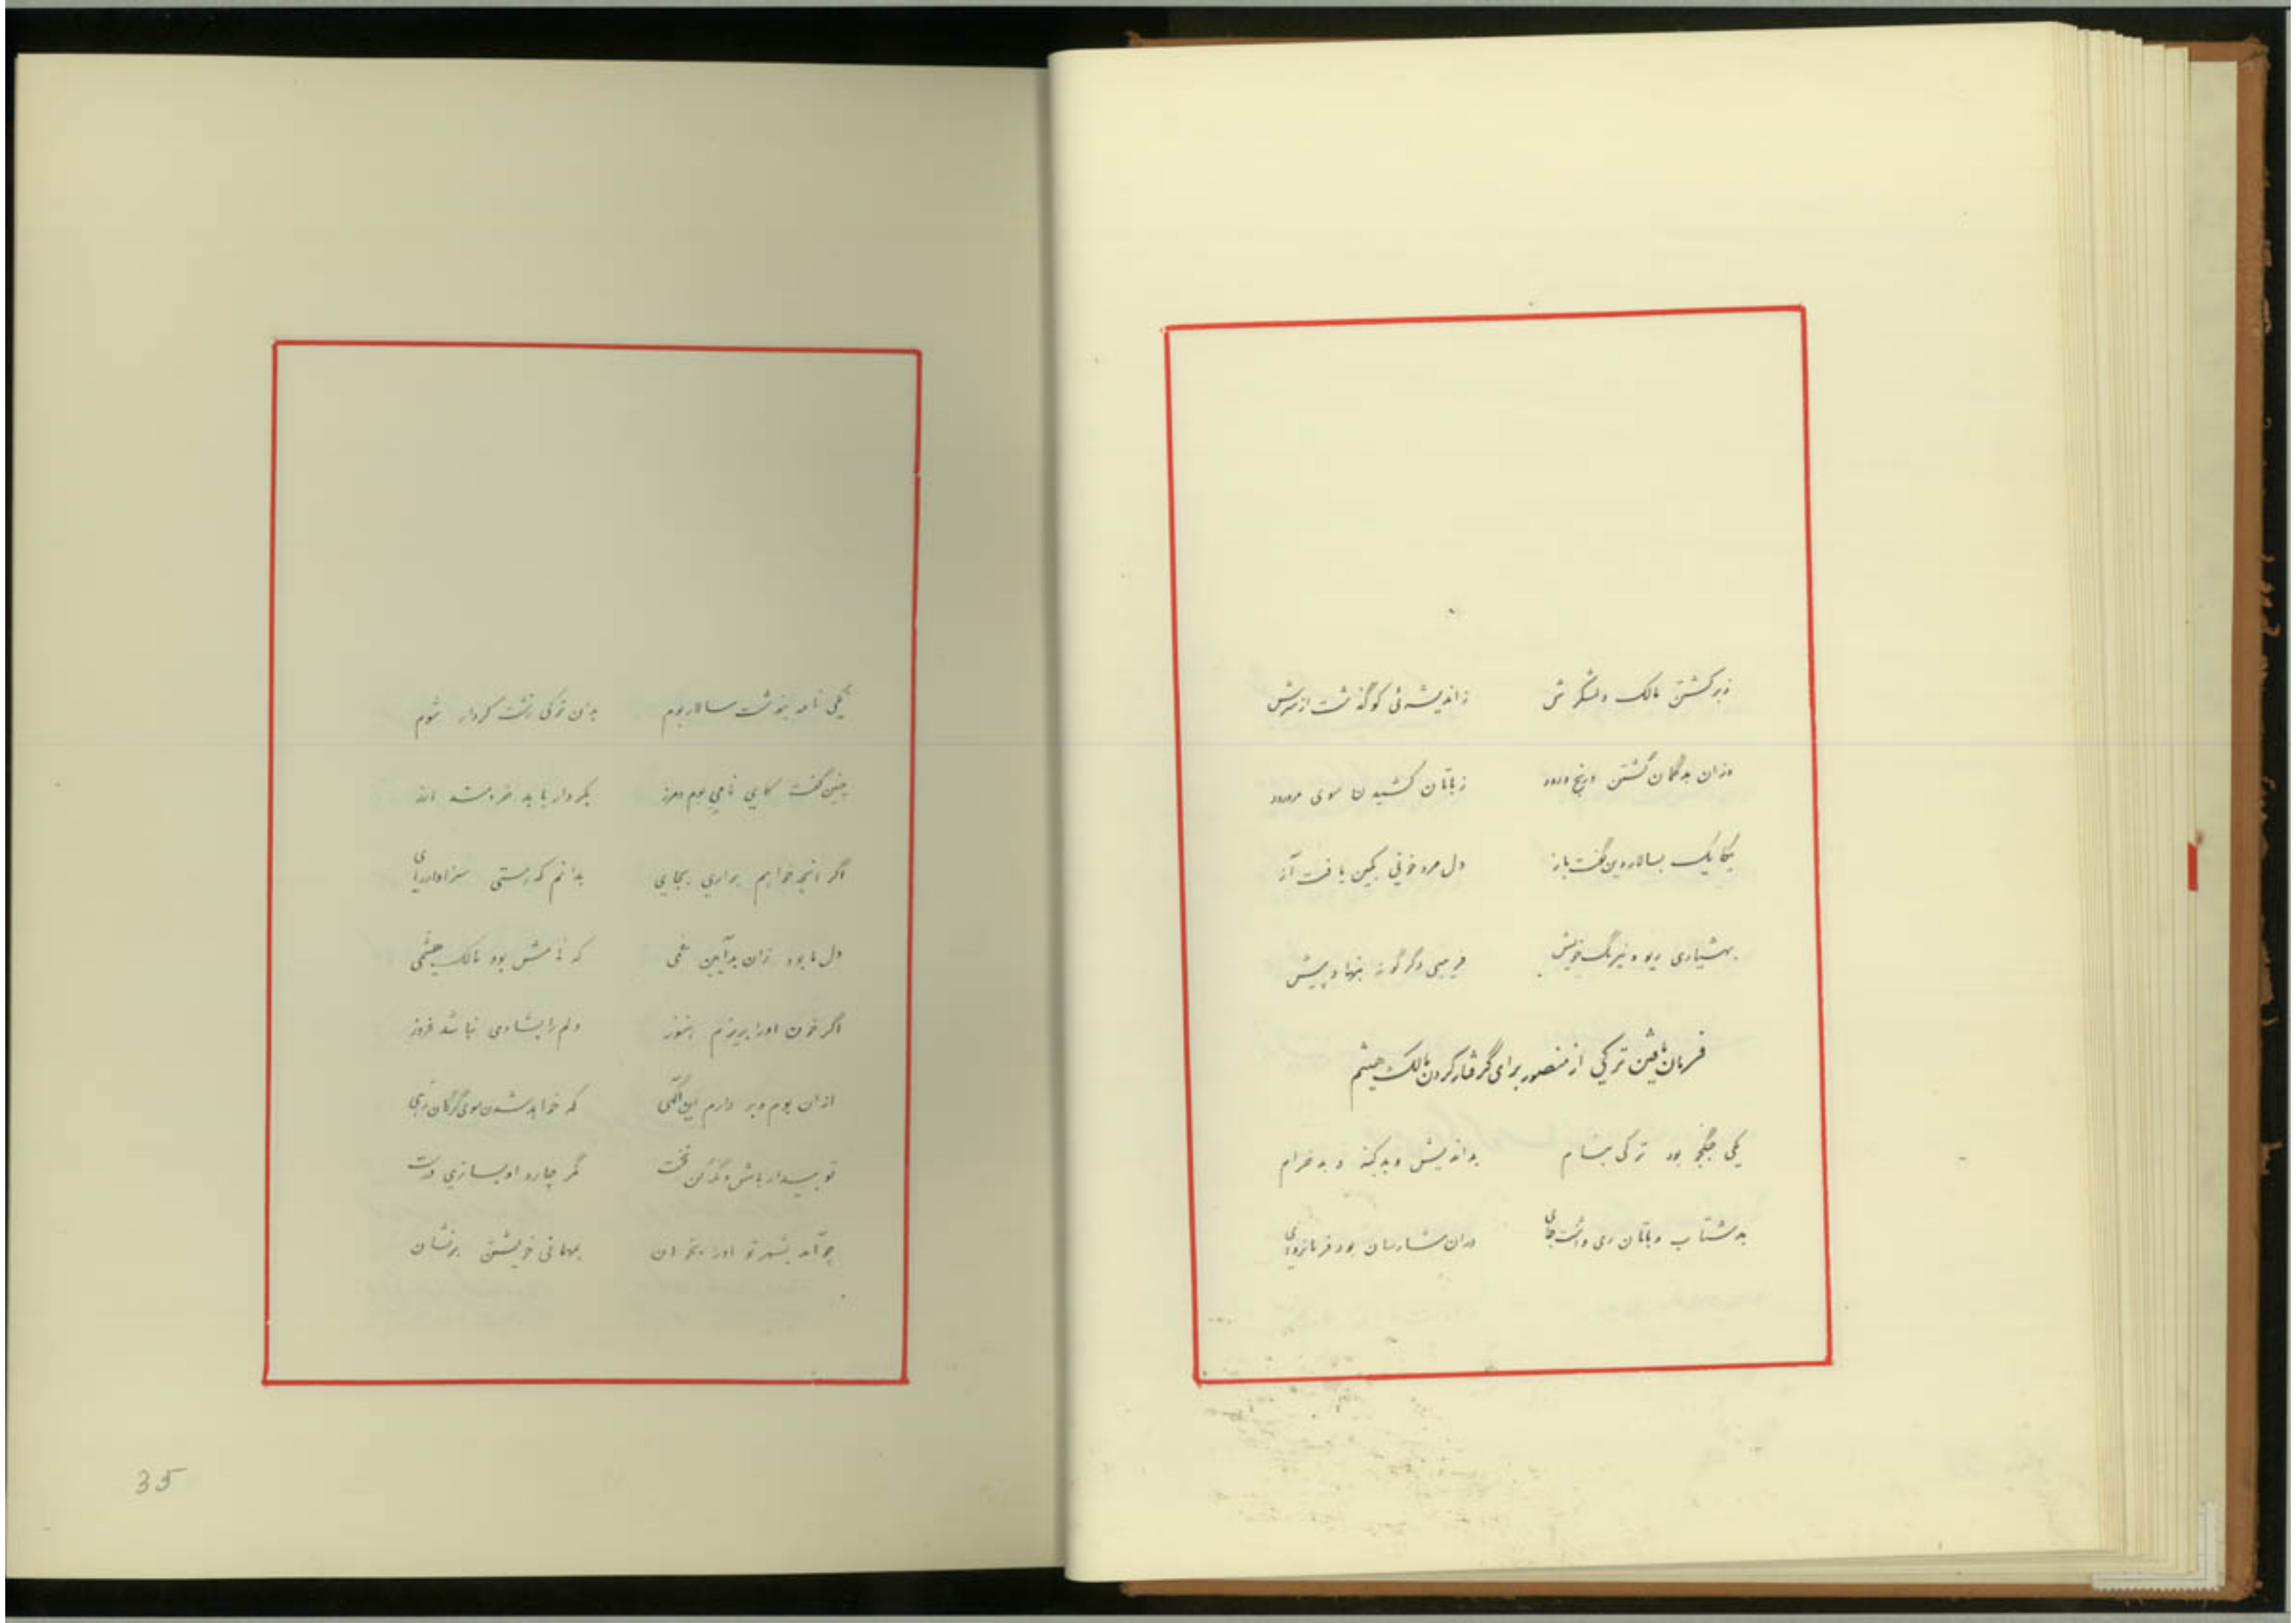 ز برگشتن مالک و لشکرش ز اندیشه‌ئی کو گذشت از سرش
وزان بدگمان گشتن و رنج و درود ز باتان کشیدن سوی مرورود
یکایک بسالار دین گفت باز دل مرد خونی بکین یافت آز
بهشیاری ریو و نیرنگ خویش فریبی دگرگونه بنهاد پیش
فرمان یافتن ترکی از منصور برای گرفتار کردن مالک هیثم
یکی جنگجو بود ترکی بنام بداندیش و بدکینه و بدخرام
بدشتاب و باتان ری داشت جای دران شارسان بود فرمانروای
یکی نامه بنوشت سالار بوم بدان ترکی زشت کردار شوم
چنین گفت کای نامی بوم و مرز بکردار باید
اگر آنچه خواهم براری بجای بدانم که هستی سزاوار رای
دل ما بود زان بدآیین غمی که نامش بود مالک هیثمی
اگر خون او را بریزم هنوز دلم را بشادی نباشد فروز
ازان بوم و بر دارم این آگهی که خواهد شدن سوی گرگان رهی
تو بیدار باش و نگه کن نخست مگر چاره او بسازی درست
چو آمد بشهر تو او را بخوان بمهمانی خویشتن برنشان
35